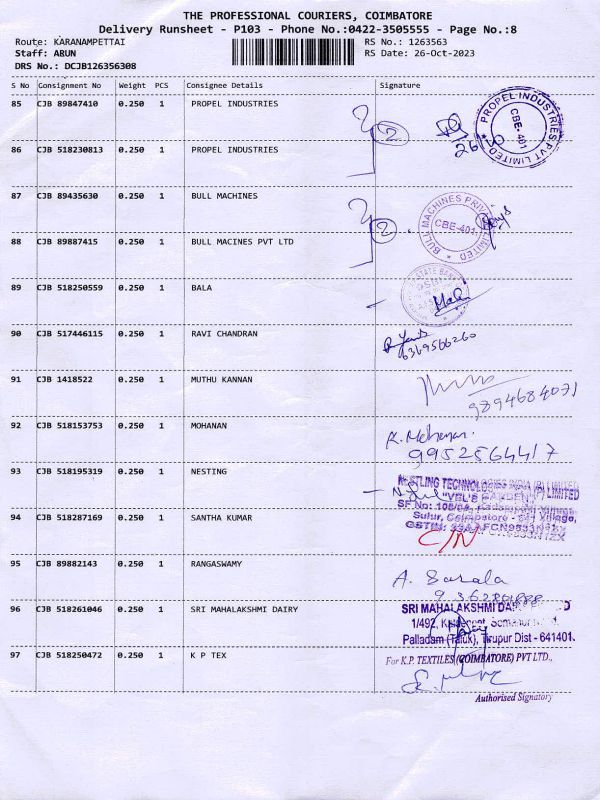 THE PROFESSIONAL COURIERS, COIMBATORE
Delivery Runsheet - P103 - Phone No.:0422-3505555 - Page No.:8
Route: KARANAMPETTAI RS No.: 1263563
Staff: ARUN RS Date: 26-Oct-2023
DRS No.: DCJB126356308
S No Consignment No Weight PCS Consignee Details Signature
85 CJB 89847410 0.250 1 PROPEL INDUSTRIES
2
PROPEL INDUSTRIES PVT LIMITED
CBE-401
26/10
86 CJB 518230813 0.250 1 PROPEL INDUSTRIES
87 CJB 89435630 0.250 1 BULL MACHINES
2
BULL MACHINES PRIVATE LIMITED
CBE-401
88 CJB 89887415 0.250 1 BULL MACINES PVT LTD
89 CJB 518250559 0.250 1 BALA
STATE BANK
90 CJB 517446115 0.250 1 RAVI CHANDRAN
6369566260
91 CJB 1418522 0.250 1 MUTHU KANNAN
9894684071
92 CJB 518153753 0.250 1 MOHANAN
K. Mohanan
9952564417
93 CJB 518195319 0.250 1 NESTING
NESTLING TECHNOLOGIES INDIA (P) LIMITED
"VEL'S GARDEN"
SF No: Village,
Sulur, Coimbatore - 641 Village,
GSTIN:
C/N
94 CJB 518287169 0.250 1 SANTHA KUMAR
95 CJB 89882143 0.250 1 RANGASWAMY
A. Sarala
96 CJB 518261046 0.250 1 SRI MAHALAKSHMI DAIRY
SRI MAHALAKSHMI
1/492,
Palladam (Taluk), Tirupur Dist - 641401.
97 CJB 518250472 0.250 1 K P TEX
For K.P. TEXTILES (COIMBATORE) PVT LTD.,
Authorised Signatory